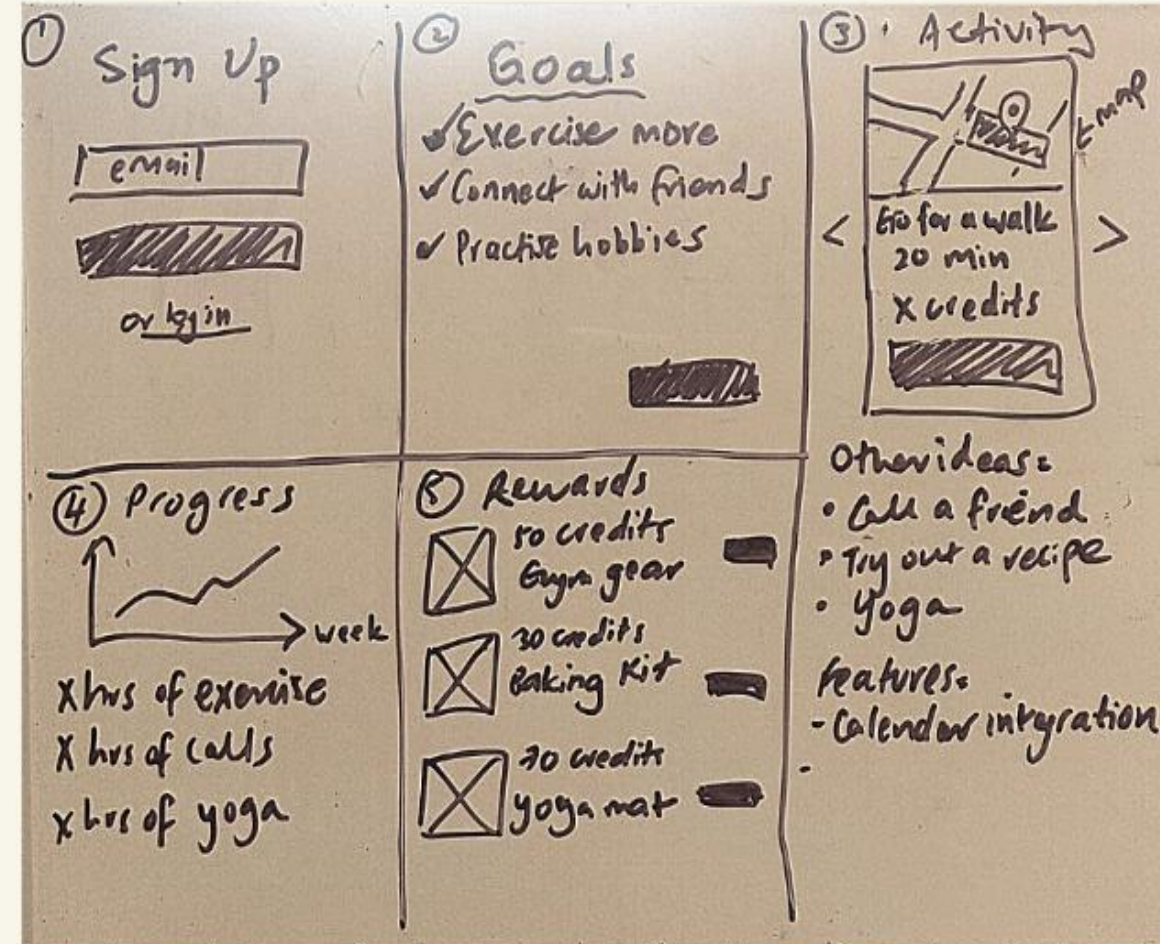 1
Sign Up
email
or login
2
Goals
Exercise more
Connect with friends
Practise hobbies
3 Activity
map
< >
Go for a walk
20 min
X credits
Other ideas:
• Call a friend
• Try out a recipe
• Yoga
Features:
- Calendar integration
-
4 Progress
week
X hrs of exercise
X hrs of calls
X hrs of yoga
5 Rewards
50 credits
Gym gear
30 credits
Baking Kit
credits
yoga mat